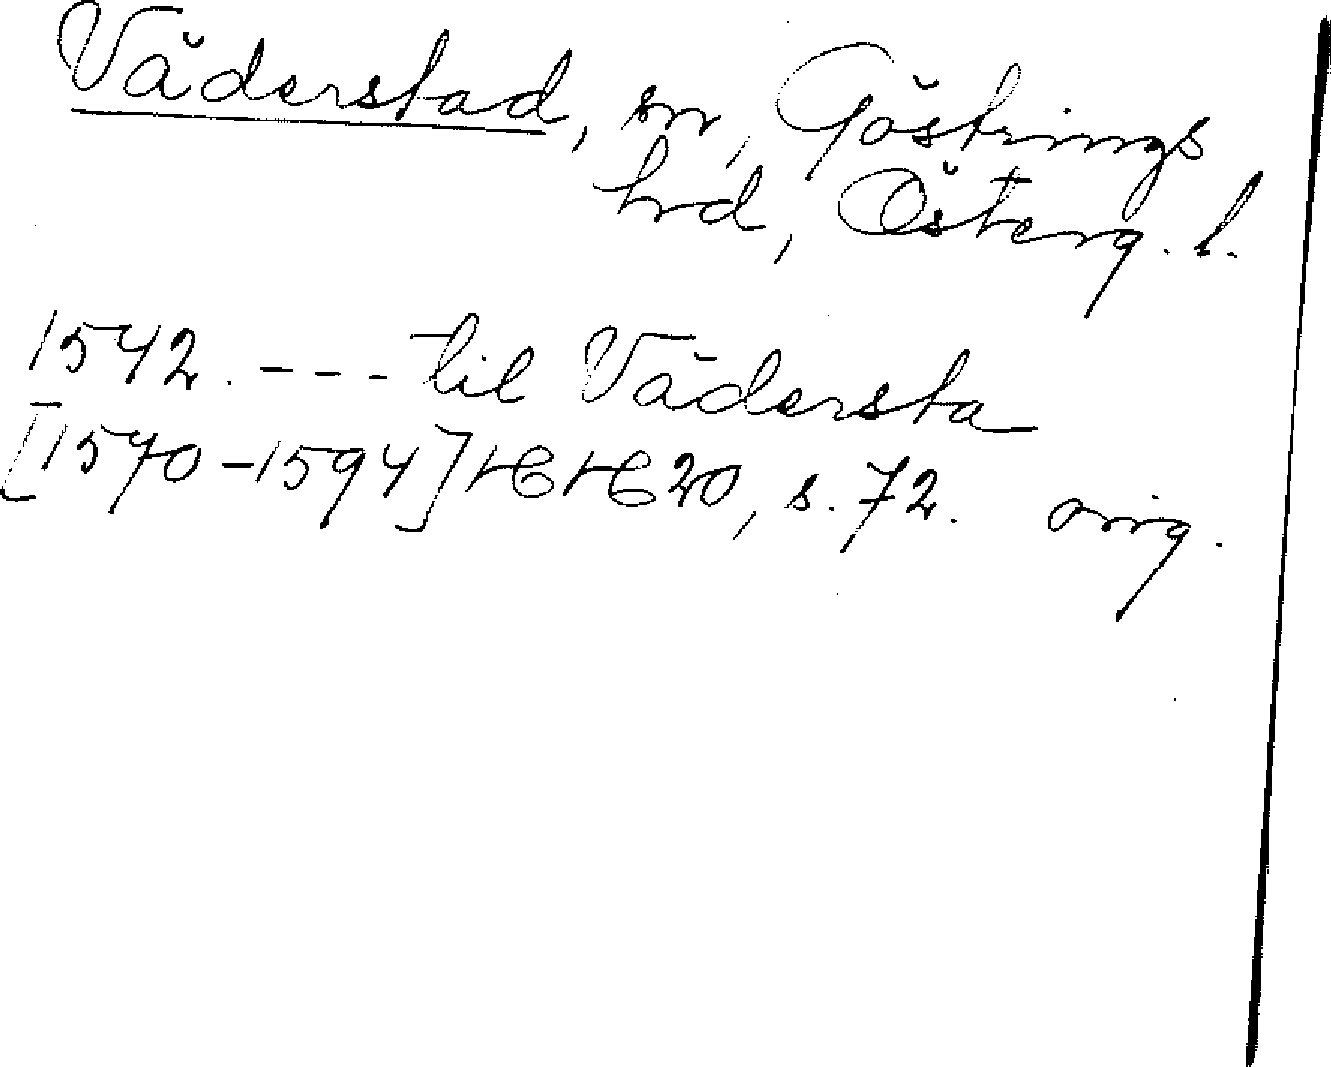 Väderstad, sn, Göstrings
hrd, Österg. l.
1542. --- til Vädersta
[1570-1594] HH 20, s. 72. orig.